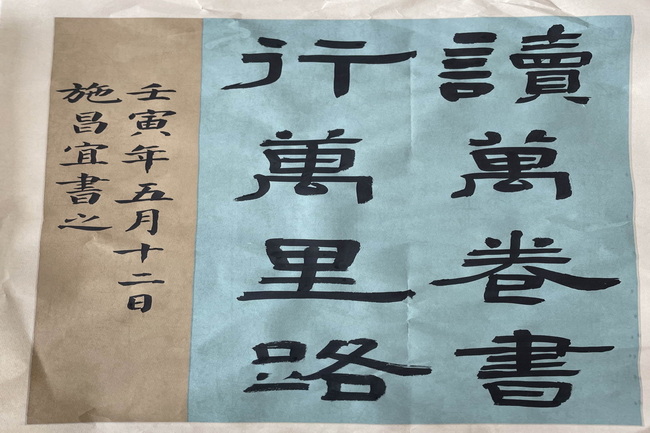 讀萬卷書
行萬里路
壬寅年五月十二日
施昌宜書之